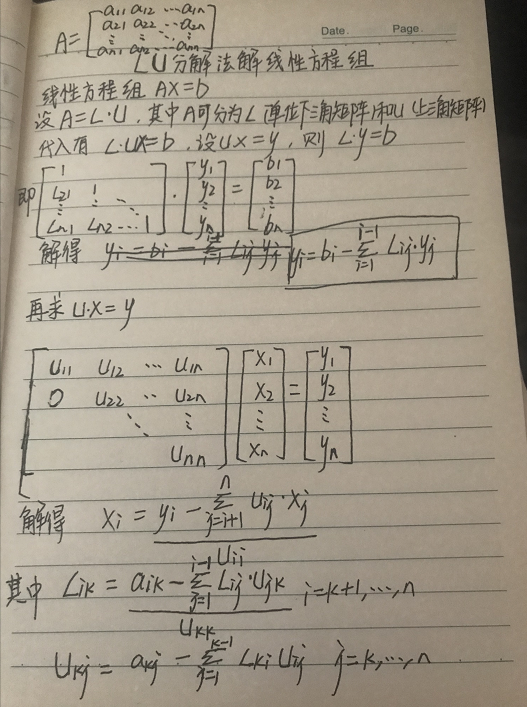 A = [a11 a12 … a1n
a21 a22 … a2n
⋮ ⋮ ⋱ ⋮
an1 an2 … ann]
Date. Page.
LU分解法解线性方程组
线性方程组 AX=b
设A=L·U,其中A可分为L(单位下三角矩阵)和U(上三角矩阵)
代入有 L·UX=b,设UX=y,则 L·y=b
即 [1
L21 1
⋮ ⋮ ⋱
Ln1 Ln2 … 1] · [y1 y2 ⋮ yn] = [b1 b2 ⋮ bn]
解得 yi = bi - ∑_{i=1}^{i-1} Lij·yj
再求 U·X=y
[U11 U12 … U1n
0 U22 … U2n
⋱ ⋮
Unn] [X1 X2 ⋮ Xn] = [y1 y2 ⋮ yn]
解得 Xi = (yi - ∑_{j=i+1}^{n} Uij·Xj) / Uii
其中 Lik = (aik - ∑_{j=1}^{i-1} Lij·Ujk) / Ukk i=k+1,…,n
Ukj = akj - ∑_{j=1}^{k-1} Lki Uij j=k,…,n